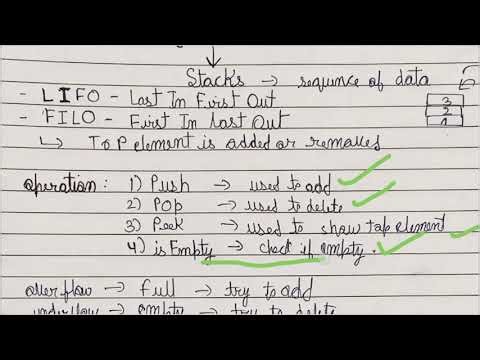 Stacks → sequence of data
- LIFO - Last In First Out
- FILO - First In Last Out
3
2
1
↳ ToP element is added or
operation : 1) Push → used to add
2) POP → used to delete
3) Peek → used to show top element
4) is Empty → check if empty.
overflow → full → try to add
underflow → empty → try to delete